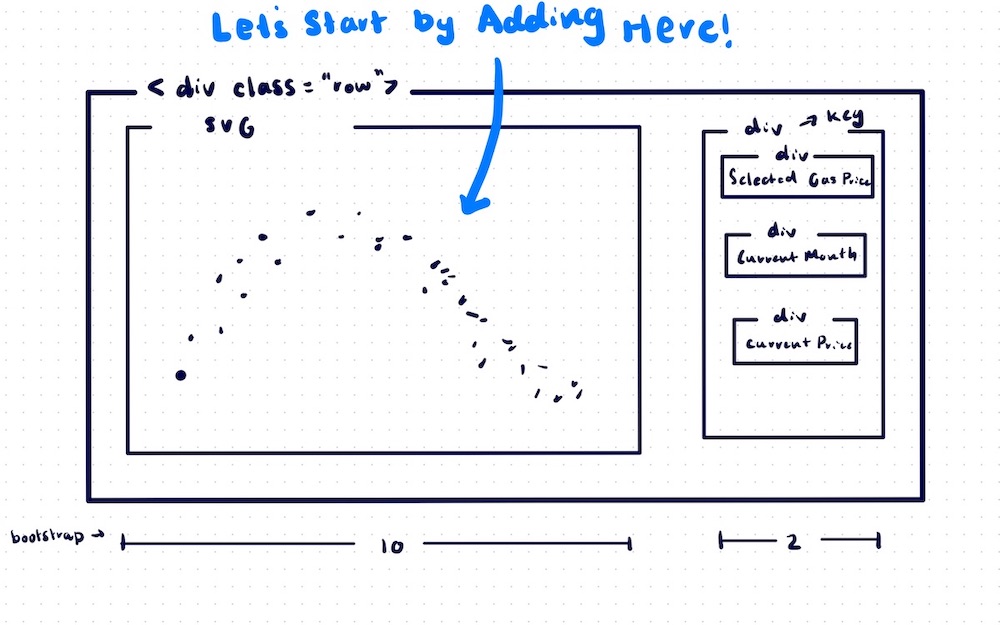 Let's Start by Adding Here!
< div class = "row">
SVG
div → key
div
Selected Gas Price
div
Current Month
div
Current Price
bootstrap →
10
2